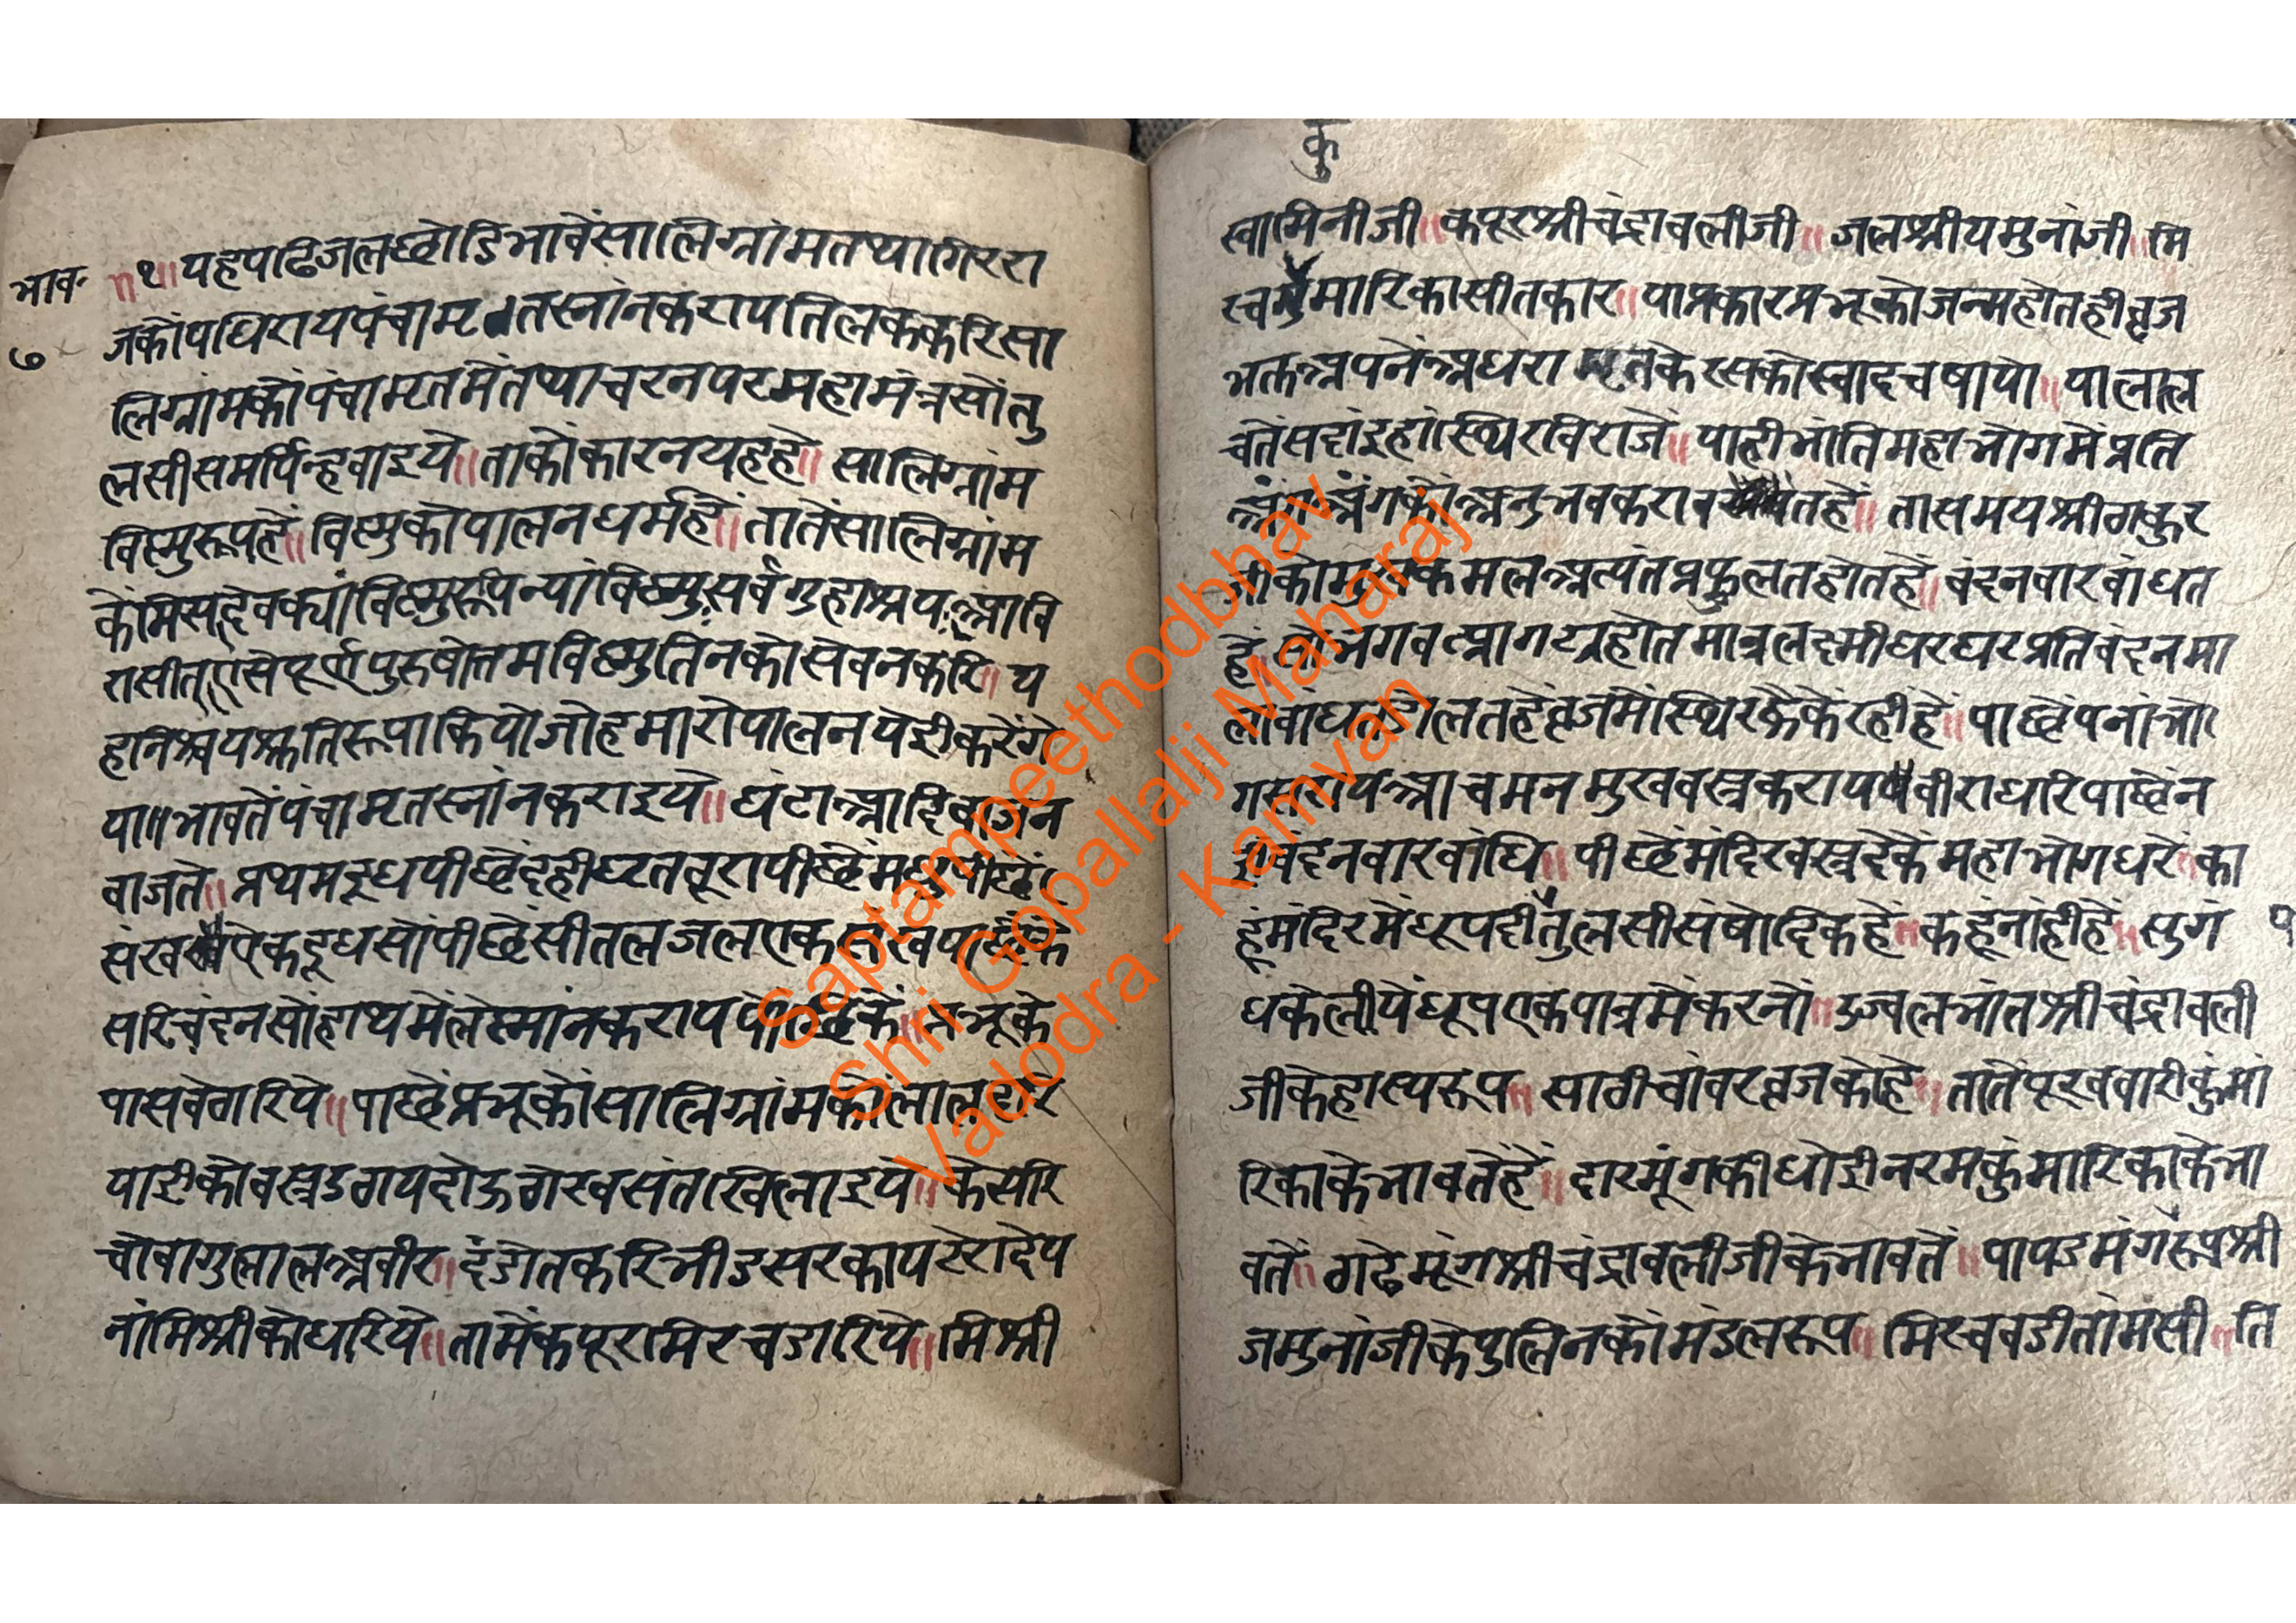 भाव॰
७
॥१॥ यहपढिजलछोडिभावेंसालिग्रांमतथागिररा
जकोंपधिरायपंचामृतस्नांनकरायतिलककरिसा
लिग्रांमकोंपंचामृतमेंतथाचरनपरमहामंत्रसोंतु
लसीसमर्पिन्हवाइये॥ताकोकारनयहहे॥सालिग्रांम
विष्णुरूपहें॥विष्णुकोपालनधर्महें॥तातेंसालिग्रांम
केंमिसदेवक्यांविष्णुरूपिन्यांविष्णुःसर्वगुहाश्रयःआवि
रासीत्ऐसेपूर्णपुरुषोत्तमविष्णुतिनकोसवनकरि॥य
हनिश्चयश्रुतिरूपाकियोजोहमारोपालनयेईकरेंगे
या॥भावतेंपंचामृतस्नांनकराइये॥घंटाआदिबाजेन
बाजते॥प्रथमदूधपीछेंदहीघृतबूरापीछेंमधुपीछें
संखएकदूधसोंपीछेंसीतलजलएकसंख
सरिचंदनसोंहाथमेंलेस्नांनकरायपोंछिकें॥प्रभूके
पासबेठारिये॥पाछेंप्रभूकोंसालिग्रांमकोंलाल
पाडीकोवस्त्रउठायदोऊठोरवसंतखिलाइये॥केसरि
चोवागुलालअवीर॥दंडोतकरिभीडसरकायसेरादेय
नांमिश्रीकोधरिये॥तामेंकपूरमिरचडारिये॥मिश्री
कु
स्वामिनीजी॥कपूरश्रीचंद्रावलीजी॥जलश्रीयमुनांजी॥मि
रचकुमारिकासीतकार॥याप्रकारप्रभूकोजन्महोतहीव्रज
भक्तअपनेंअधरामृतकेरसकोस्वादचषायो॥यालाल
चतेंसदांइहांस्थिरविराजें॥याहीभांतिमहाभोगमेंप्रति
अंगअंगकोअनुभवकरावतहें॥तासमयश्रीठाकुर
जीकोमुखकमलअत्यंतप्रफुलतहोतहें॥बंदनवारबांधत
हें॥सोभगवत्प्रागट्यहोतमात्रलक्ष्मीघरघरप्रतिबंदनमा
लाबांधतडोलतहेंव्रजमेंस्थिरव्हेकेंरहीहें॥पाछेंपनांभो
गसरायआचमनमुखवस्त्रकरायबीराधरिपाछेंन
ईबंदनवारबांधि॥पीछेंमंदिरवस्त्रदेकेंमहाभोगधरें॥का
हूंमंदिरमेंधूपदीतुलसीसंषोदिकहें॥कहूंनांहीहें॥सुगं १
धकेलीयेंधूपएकपात्रमेंकरनों॥उज्वलभातश्रीचंद्रावली
जीकेहास्यरूप॥साठीचांवरव्रजकोहे॥तातेंपूरबवारीकुंमां
रिकाकेभावतेंहें॥दारमूंगकीधोईनरमकुंमारिकाकेभा
वतें॥ठाढेमूंगश्रीचंद्रावलीजीकेभावतें॥पापडमंगरूपश्री
जमुनांजीकेपुलिनकोंमंडलरूप॥मिरचबडीतांमसी॥ति
Saptampeethodbhav
Shri Gopallalji Maharaj
Vadodra - Kamvan